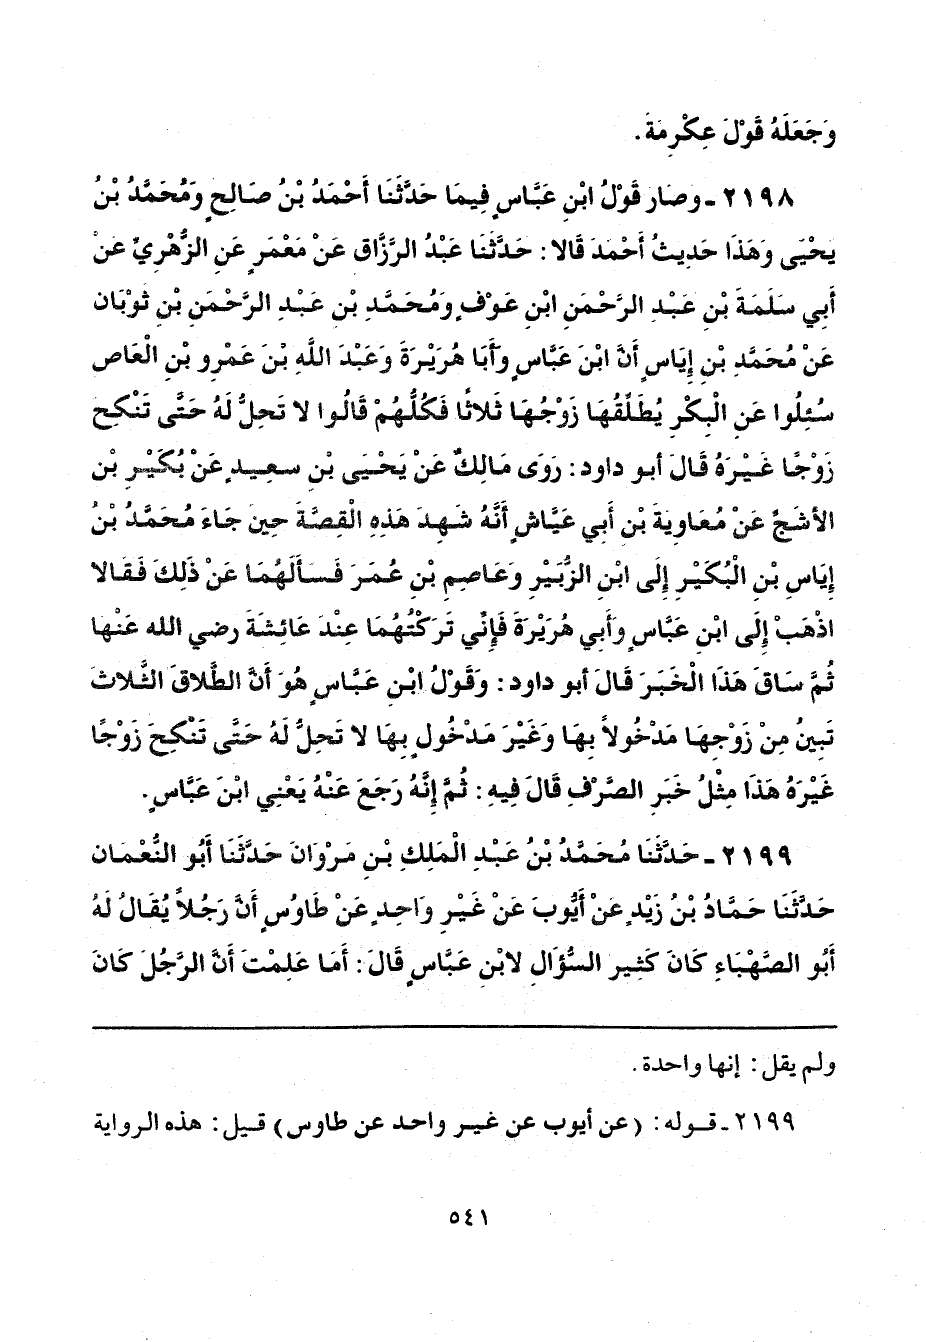 وَجَعَلَهُ قَوْلَ عِكْرِمَةَ.
٢١٩٨ ـ وصار قَوْلُ ابْنِ عَبَّاسٍ فِيمَا حَدَّثَنَا أَحْمَدُ بْنُ صَالِحٍ وَمُحَمَّدُ بْنُ
يَحْيَى وَهَذَا حَدِيثُ أَحْمَدَ قَالا: حَدَّثَنَا عَبْدُ الرَّزَّاقِ عَنْ مَعْمَرٍ عَنِ الزُّهْرِيِّ عَنْ
أَبِي سَلَمَةَ بْنِ عَبْدِ الرَّحْمَنِ ابْنِ عَوْفٍ وَمُحَمَّدِ بْنِ عَبْدِ الرَّحْمَنِ بْنِ ثَوْبَانَ
عَنْ مُحَمَّدِ بْنِ إِيَاسٍ أَنَّ ابْنَ عَبَّاسٍ وَأَبَا هُرَيْرَةَ وَعَبْدَ اللَّهِ بْنَ عَمْرِو بْنِ الْعَاصِ
سُئِلُوا عَنِ الْبِكْرِ يُطَلِّقُهَا زَوْجُهَا ثَلاثًا فَكُلُّهُمْ قَالُوا لا تَحِلُّ لَهُ حَتَّى تَنْكِحَ
زَوْجًا غَيْرَهُ قَالَ أبو داود: رَوَى مَالِكٌ عَنْ يَحْيَى بْنِ سعِيدٍ عَنْ بُكَيْرِ بْنِ
الأشَجِّ عَنْ مُعَاوِيَةَ بْنِ أَبِي عَيَّاشٍ أَنَّهُ شَهِدَ هَذِهِ الْقِصَّةَ حِينَ جَاءَ مُحَمَّدُ بْنُ
إِيَاسِ بْنِ الْبُكَيْرِ إِلَى ابْنِ الزُّبَيْرِ وَعَاصِمِ بْنِ عُمَرَ فَسَأَلَهُمَا عَنْ ذَلِكَ فَقَالا
اذْهَبْ إِلَى ابْنِ عَبَّاسٍ وَأَبِي هُرَيْرَةَ فَإِنِّي تَرَكْتُهُمَا عِنْدَ عَائِشَةَ رضي الله عَنْها
ثُمَّ سَاقَ هَذَا الْخَبَرَ قَالَ أبو داود: وَقَوْلُ ابْنِ عَبَّاسٍ هُوَ أَنَّ الطَّلاقَ الثَّلاثَ
تَبِينُ مِنْ زَوْجِهَا مَدْخُولاً بِهَا وَغَيْرَ مَدْخُولٍ بِهَا لا تَحِلُّ لَهُ حَتَّى تَنْكِحَ زَوْجًا
غَيْرَهُ هَذَا مِثْلُ خَبَرِ الصَّرْفِ قَالَ فِيهِ: ثُمَّ إِنَّهُ رَجَعَ عَنْهُ يَعْنِي ابْنَ عَبَّاسٍ.
٢١٩٩ ـ حَدَّثَنَا مُحَمَّدُ بْنُ عَبْدِ الْمَلِكِ بْنِ مَرْوَانَ حَدَّثَنَا أَبُو النُّعْمَانِ
حَدَّثَنَا حَمَّادُ بْنُ زَيْدٍ عَنْ أَيُّوبَ عَنْ غَيْرِ وَاحِدٍ عَنْ طَاوُسٍ أَنَّ رَجُلاً يُقَالُ لَهُ
أَبُو الصَّهْبَاءِ كَانَ كَثِيرَ السُّؤَالِ لابْنِ عَبَّاسٍ قَالَ: أَمَا عَلِمْتَ أَنَّ الرَّجُلَ كَانَ
ولم يقل: إنها واحدة.
٢١٩٩ ـ قـولـه: (عن أيوب عن غيـر واحد عن طاوس) قـيـل: هذه الرواية
٥٤١